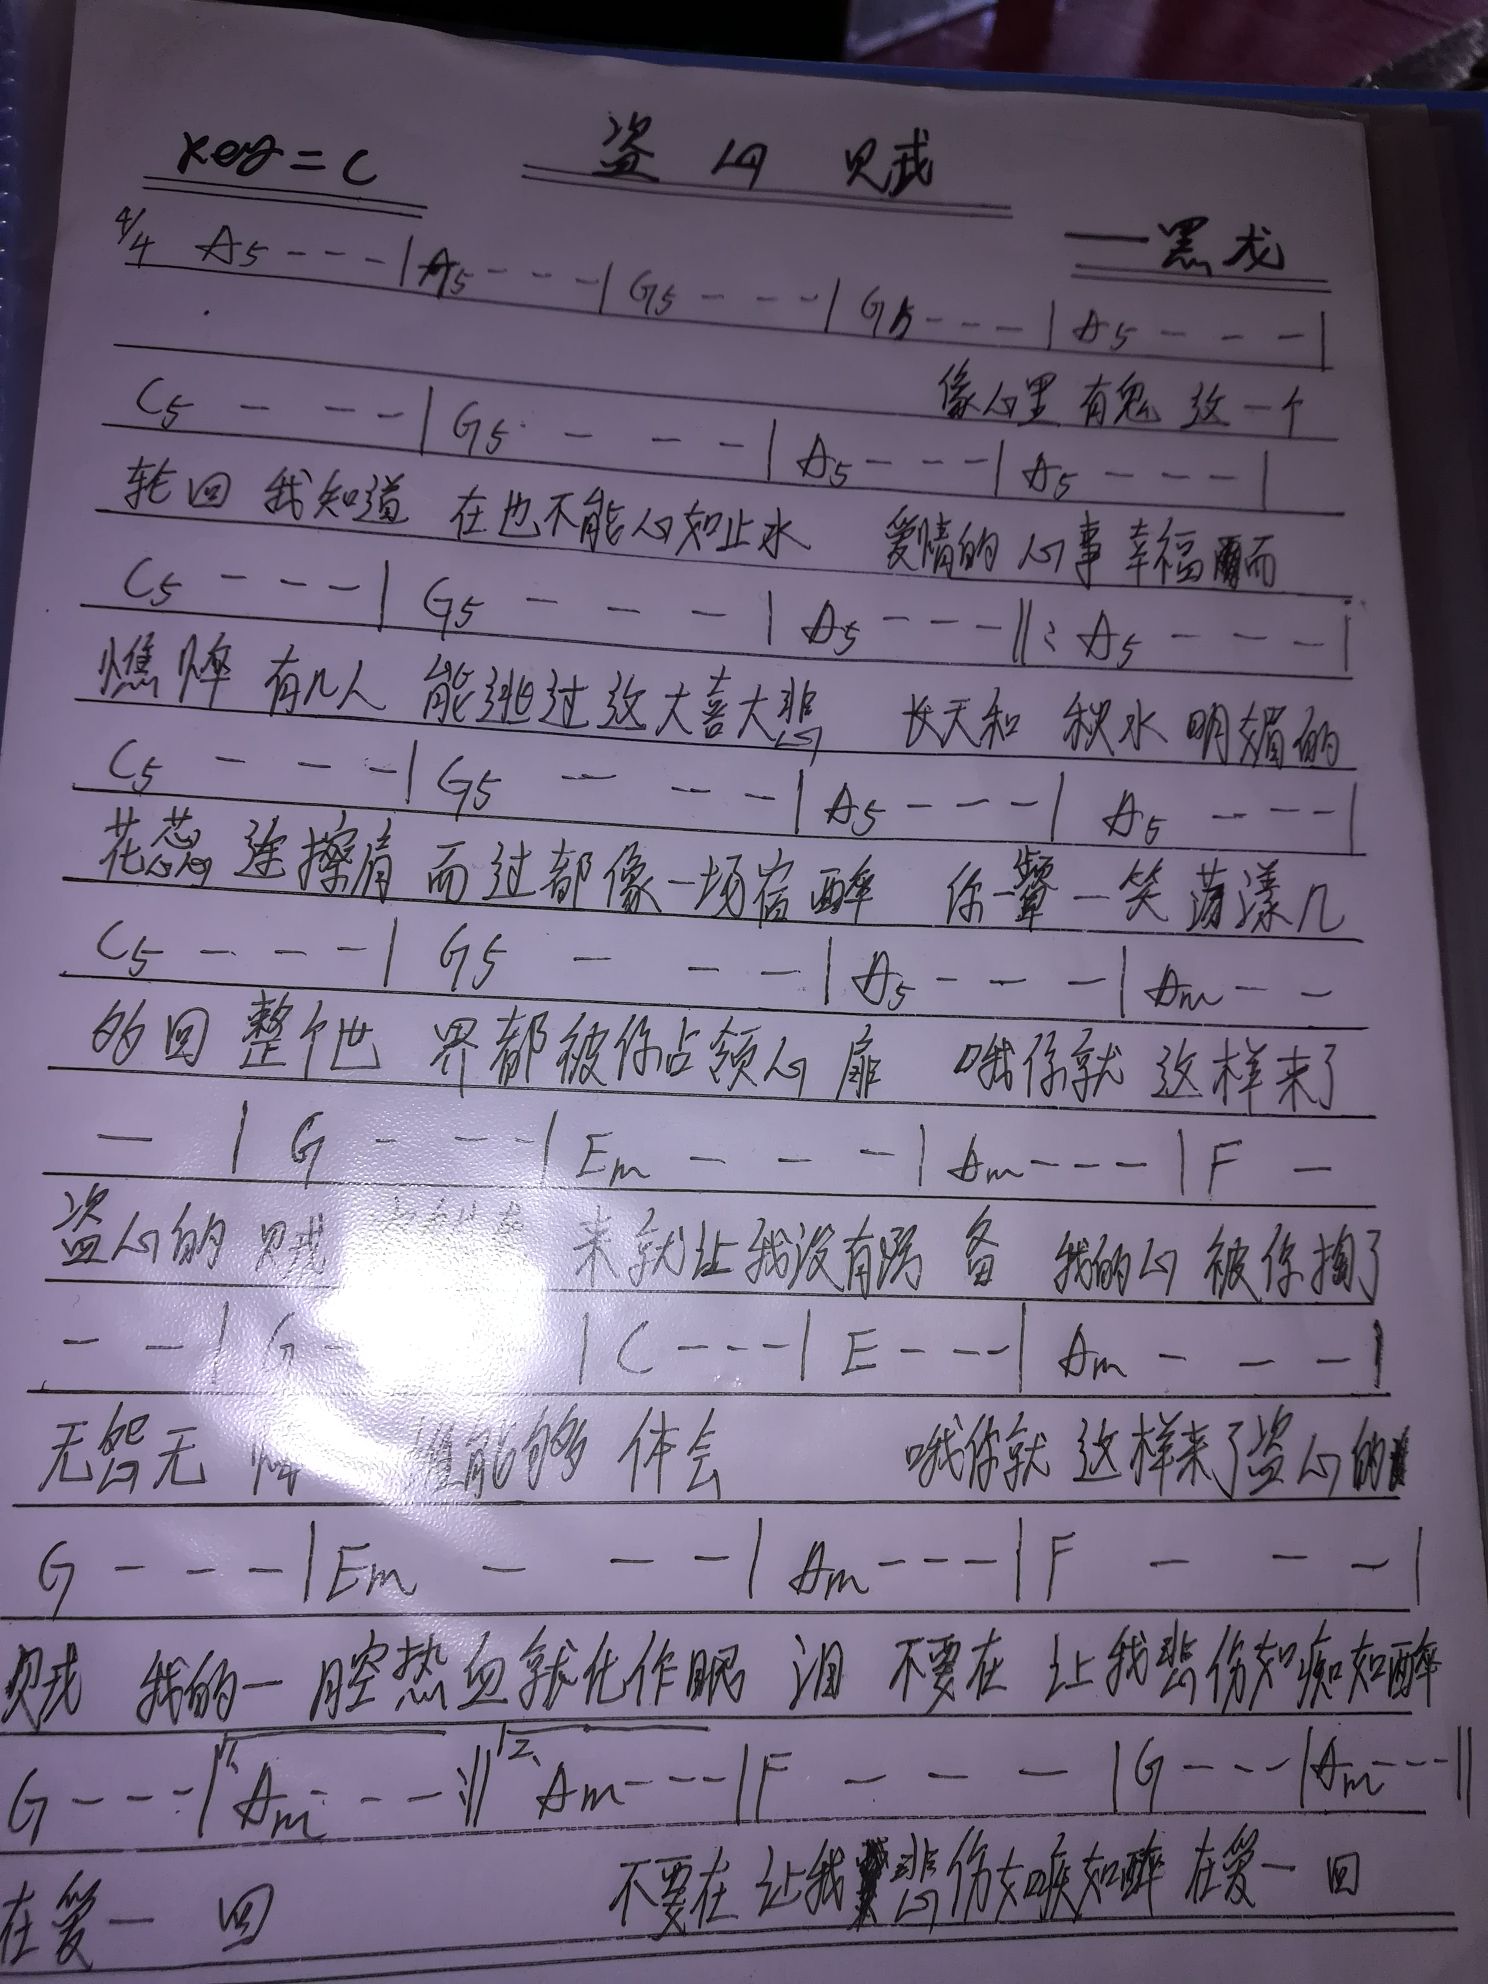 Key=C 盗心贼
——黑龙
4/4 A5 - - - | A5 - - - | G5 - - - | G5 - - - | A5 - - - |
像心里有鬼 这一个
C5 - - - | G5 - - - | A5 - - - | A5 - - - |
轮回 我知道 在也不能心如止水 爱情的 心事 幸福而
C5 - - - | G5 - - - | A5 - - - ‖: A5 - - - |
憔悴 有几人 能逃过这大喜大悲 长天和 秋水 明媚的
C5 - - - | G5 - - - | A5 - - - | A5 - - - |
花蕊 连擦肩 而过都像一场宿醉 你一颦一笑 荡漾几
C5 - - - | G5 - - - | A5 - - - | Am - -
的回 整个世 界都被你占领心扉 哦你就 这样来了
- | G - - - | Em - - - | Am - - - | F -
盗心的 贼 来就让我没有防 备 我的心 被你掏了
- - | G - | C - - - | E - - - | Am - - - |
无怨无 能够 体会 哦你就 这样来了盗心的
G - - - | Em - - - | Am - - - | F - - - |
贼 我的一 腔热血就化作眼 泪 不要在 让我悲伤如痴如醉
G - - - | 1. Am - - - :‖ 2. Am - - - | F - - - | G - - - | Am - - - ‖
在爱一 回 不要在 让我悲伤如痴如醉 在爱一 回